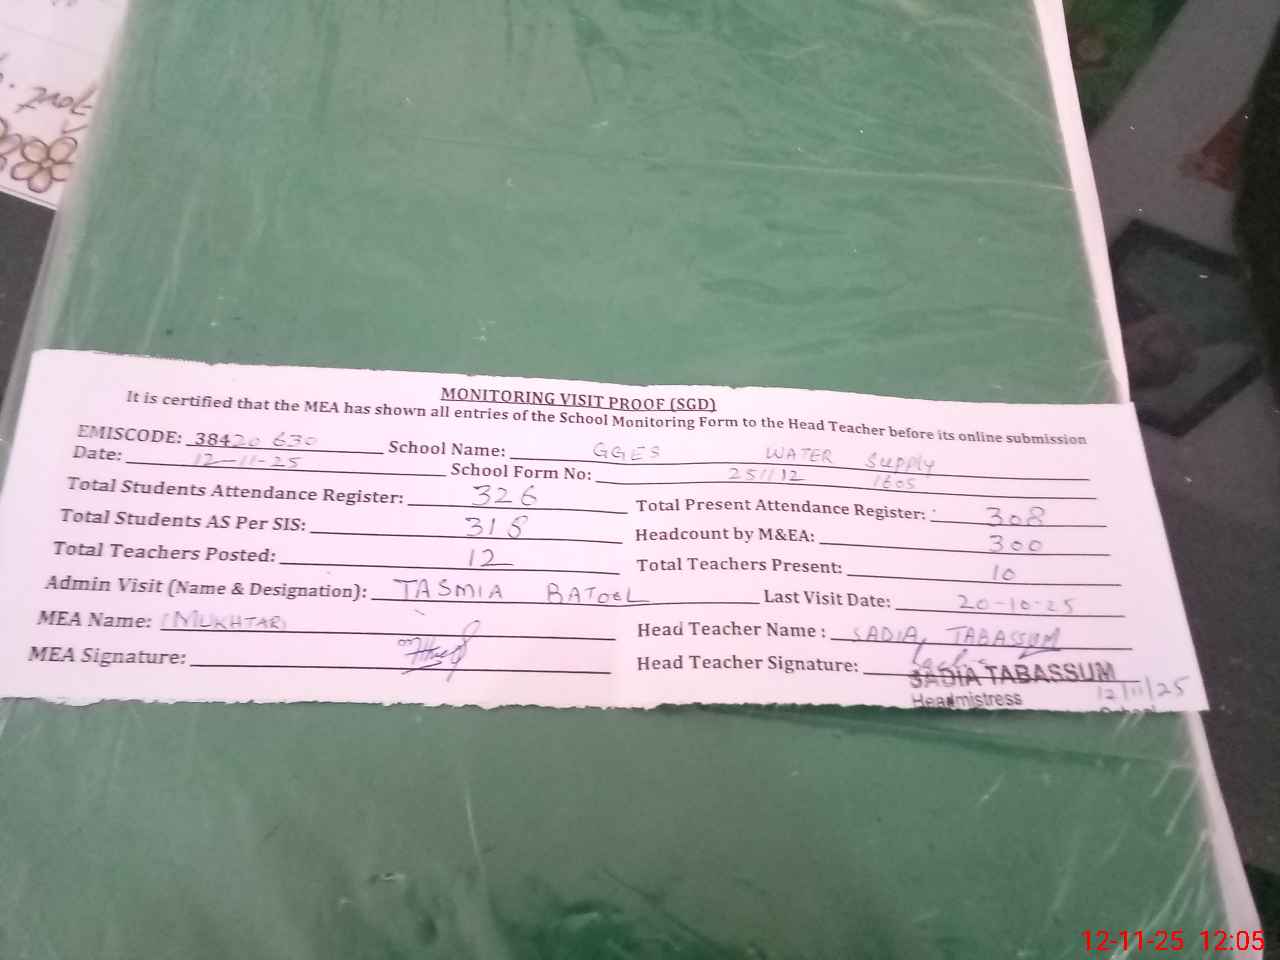 MONITORING VISIT PROOF (SGD)
It is certified that the MEA has shown all entries of the School Monitoring Form to the Head Teacher before its online submission
EMISCODE: 38420630 School Name: GGES WATER Supply
Date: 12-11-25 School Form No: 251112 1605
Total Students Attendance Register: 326 Total Present Attendance Register: 308
Total Students AS Per SIS: 318 Headcount by M&EA: 300
Total Teachers Posted: 12 Total Teachers Present: 10
Admin Visit (Name & Designation): TASMIA BATOOL Last Visit Date: 20-10-25
MEA Name: MUKHTAR Head Teacher Name : SADIA TABASSUM
MEA Signature: Head Teacher Signature:
SADIA TABASSUM
Headmistress 12/11/25
12-11-25 12:05